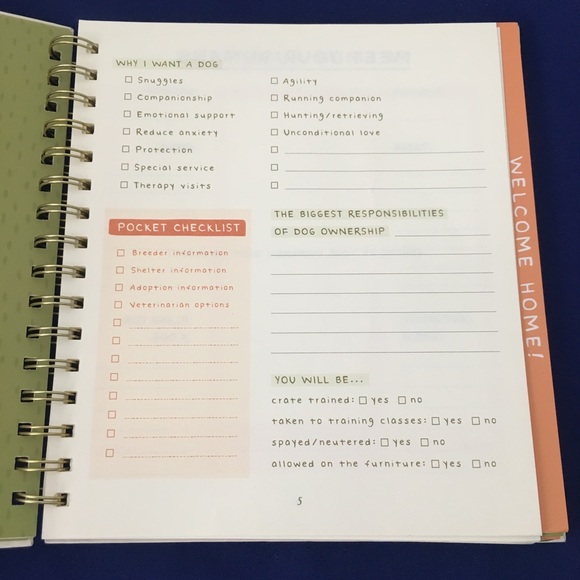 WHY I WANT A DOG
Snuggles
Companionship
Emotional support
Reduce anxiety
Protection
Special service
Therapy visits
Agility
Running companion
Hunting/retrieving
Unconditional love
POCKET CHECKLIST
Breeder information
Shelter information
Adoption information
Veterinarian options
THE BIGGEST RESPONSIBILITIES
OF DOG OWNERSHIP
YOU WILL BE...
crate trained: yes no
taken to training classes: yes no
spayed/neutered: yes no
allowed on the furniture: yes no
5
WELCOME HOME!